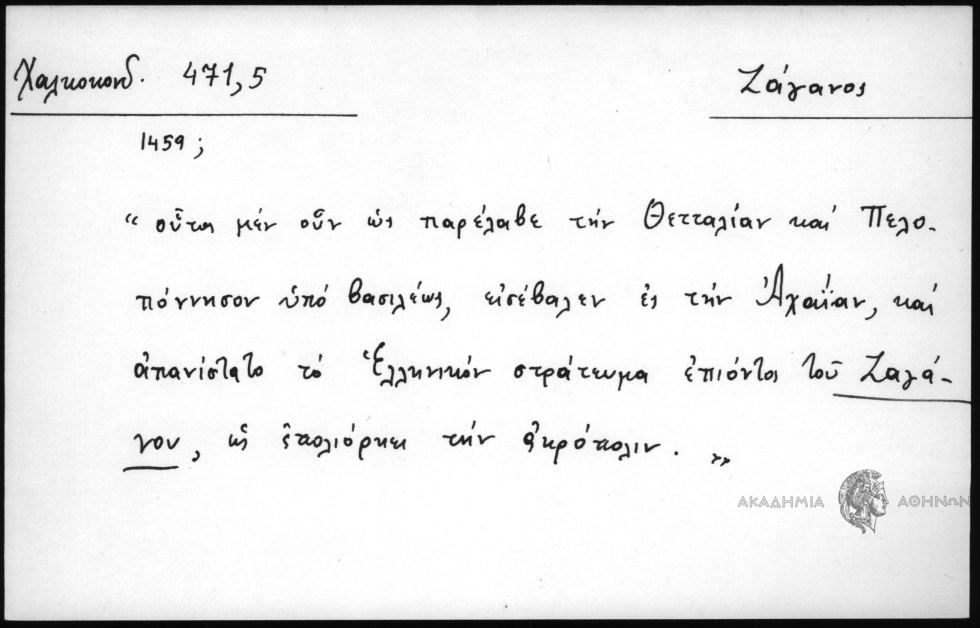 Χαλκοκονδ. 471,5
Ζάγανος
1459 ;
“ οὗτος μέν οὖν ὡς παρέλαβε τήν Θετταλίαν καί Πελο-
πόννησον ὑπό βασιλέως, εἰσέβαλεν ἐς τήν Ἀχαΐαν, καί
ἀπανίστατο τό Ἑλληνικόν στράτευμα ἐπιόντος τοῦ Ζαγά-
νου, ὡς ἐπολιόρκει τήν ἀκρόπολιν. ”
ΑΚΑΔΗΜΙΑ ΑΘΗΝΩΝ